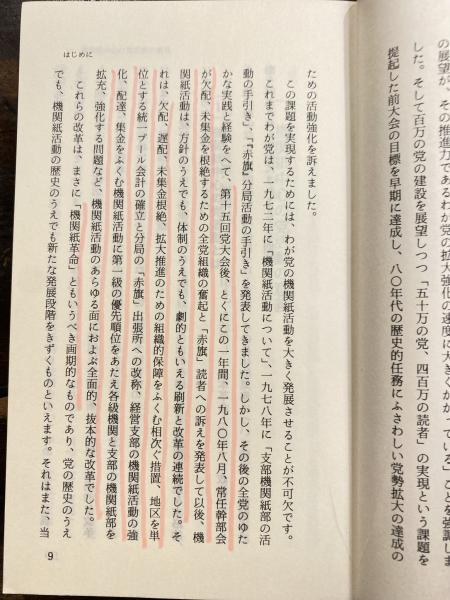 の展望が、その推進力であるわが党の拡大強化の速度に大きくかかっている」ことを強調しま
した。そして百万の党の建設を展望しつつ「五十万の党、四百万の読者」の実現という課題を
提起した前大会の目標を早期に達成し、八〇年代の歴史的任務にふさわしい党勢拡大の達成の
はじめに
ための活動強化を訴えました。
この課題を実現するためには、わが党の機関紙活動を大きく発展させることが不可欠です。
これまでわが党は、一九七二年に「機関紙活動について」、一九七八年に「支部機関紙部の活
動の手引き」、「『赤旗』分局活動の手引き」を発表してきました。しかし、その後の全党のゆた
かな実践と経験をへて、第十五回党大会後、とくにこの一年間、一九八〇年八月、常任幹部会
が欠配、未集金を根絶するための全党組織の奮起と「赤旗」読者への訴えを発表して以後、機
関紙活動は、方針のうえでも、体制のうえでも、劇的ともいえる刷新と改革の連続でした。そ
れは、欠配、遅配、未集金根絶、拡大推進のための組織的保障をふくむ相次ぐ措置、地区を単
位とする統一プール会計の確立と分局の「赤旗」出張所への改称、経営支部の機関紙活動の強
化、配達、集金をふくむ機関紙活動に第一級の優先順位をあたえ各級機関と支部の機関紙部を
拡充、強化する問題など、機関紙活動のあらゆる面におよぶ全面的、抜本的な改革でした。
これらの改革は、まさに「機関紙革命」ともいうべき画期的なものであり、党の歴史のうえ
でも、機関紙活動の歴史のうえでも新たな発展段階をきずくものといえます。それはまた、当
9